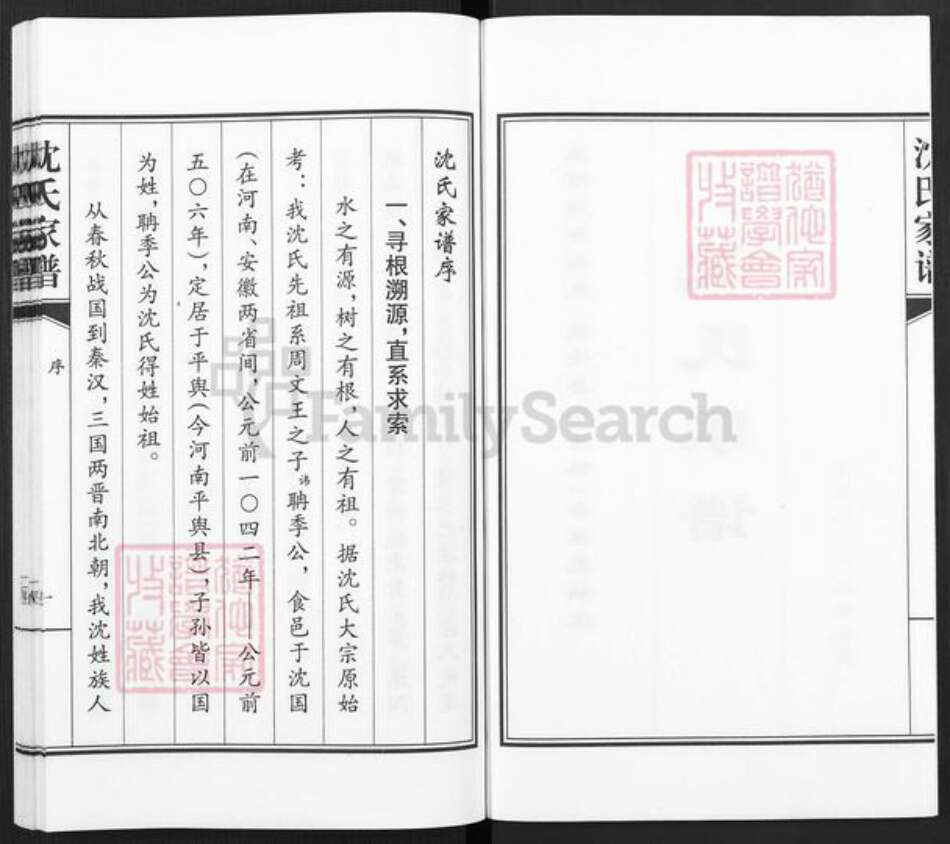 沈氏家谱序
一、寻根溯源，直系求索
水之有源，树之有根，人之有祖。据沈氏大宗原始
考：我沈氏先祖系周文王之子讳聃季公，食邑于沈国
（在河南、安徽两省间，公元前一〇四二年——公元前
五〇六年），定居于平舆（今河南平舆县），子孙皆以国
为姓，聃季公为沈氏得姓始祖。
从春秋战国到秦汉，三国两晋南北朝，我沈姓族人
沈氏家谱
序
FamilySearch